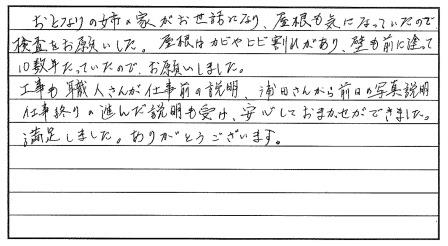 おとなりの姉の家がお世話になり、屋根も気になっていたので
検査をお願いした。屋根はカビやヒビ割れがあり、壁も前に塗って
10数年たっていたので、お願いしました。
工事も職人さんが仕事前の説明、浦田さんから前日の写真説明
仕事終りの進んだ説明も受け、安心しておまかせができました。
満足しました。ありがとうございます。